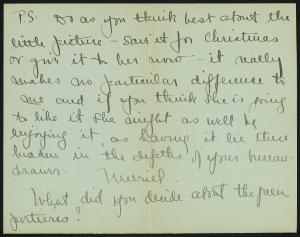 P.S. Do as you think best about the
little picture - save it for Christmas
or give it to her now - it really
makes no particular difference to
me and if you think she is going
to like it she might as well be
enjoying it, as having it lie there
hidden in the depths of your bureau-
drawer.
Muriel.
What did you decide about the green
portieres?